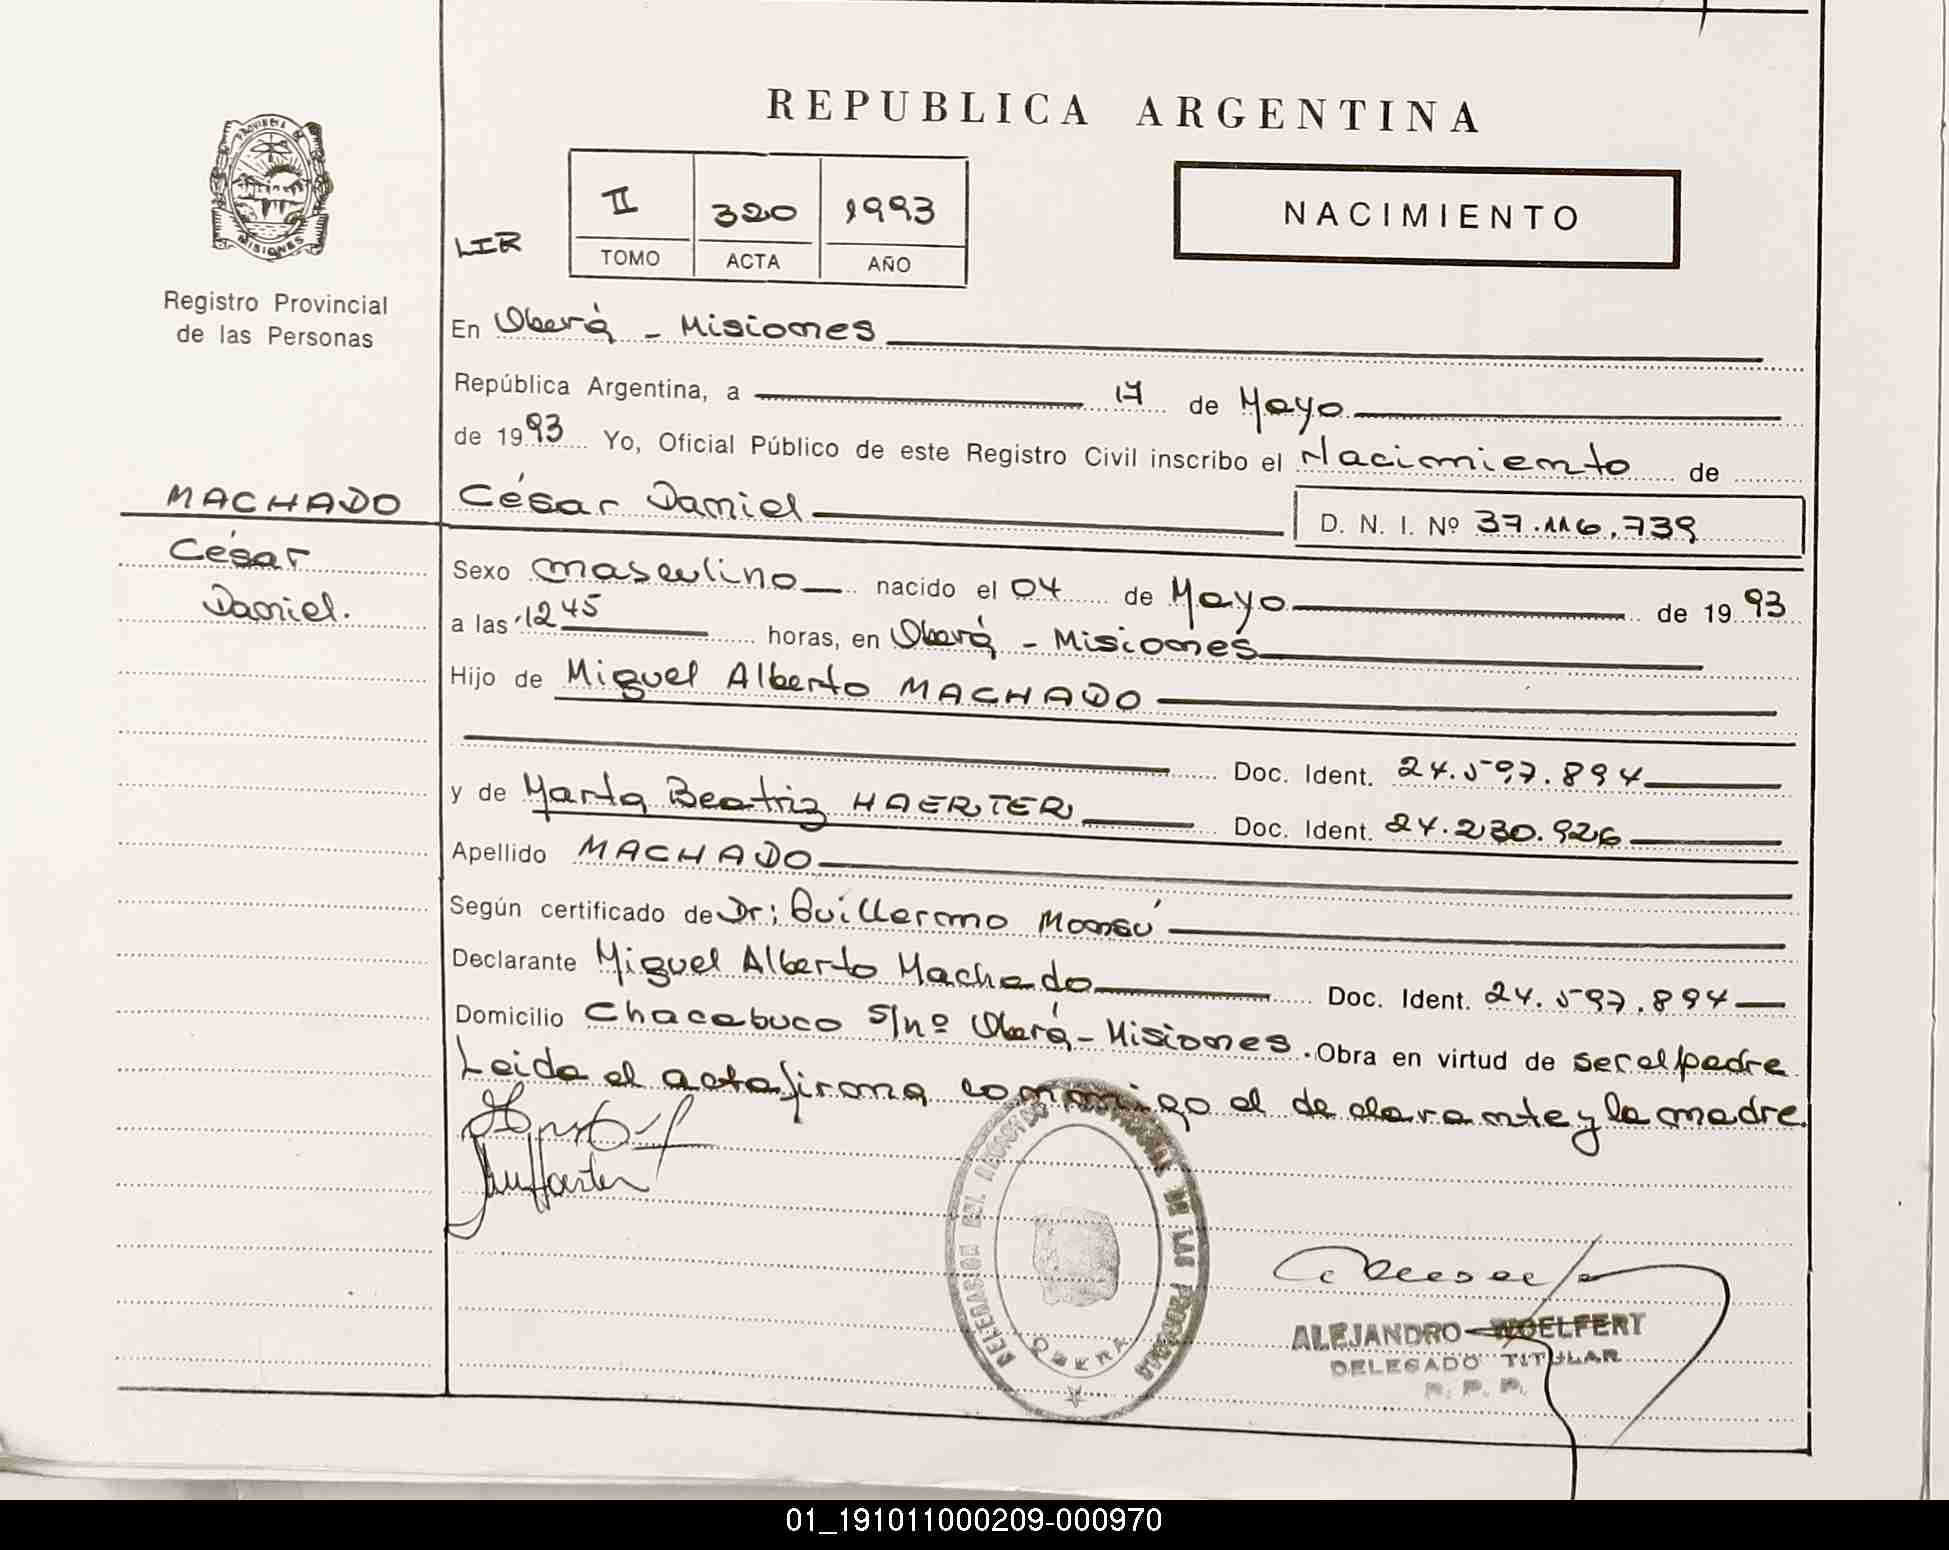 REPUBLICA ARGENTINA
PROVINCIA DE
MISIONES
Registro Provincial
de las Personas
LIR
II 320 1993
TOMO ACTA AÑO
NACIMIENTO
En Oberá - Misiones
República Argentina, a 17 de Mayo
de 1993 Yo, Oficial Público de este Registro Civil inscribo el Nacimiento de
MACHADO
César
Daniel.
César Daniel D. N. I. Nº 37.116.739
Sexo masculino nacido el 04 de Mayo de 1993
a las 12 45 horas, en Oberá - Misiones
Hijo de Miguel Alberto MACHADO
Doc. Ident. 24.597.894
y de Marta Beatriz HAERTER Doc. Ident. 24.230.926
Apellido MACHADO
Según certificado de Dr: Guillermo Monsú
Declarante Miguel Alberto Machado Doc. Ident. 24.597.894
Domicilio Chacabuco S/nº Oberá - Misiones. Obra en virtud de ser el padre
Leida el acta firma conmigo el declarante y la madre.
DELEGACION DEL REGISTRO PROVINCIAL DE LAS PERSONAS
OBERA
ALEJANDRO WOELFERT
DELEGADO TITULAR
R. P. P.
01_191011000209-000970